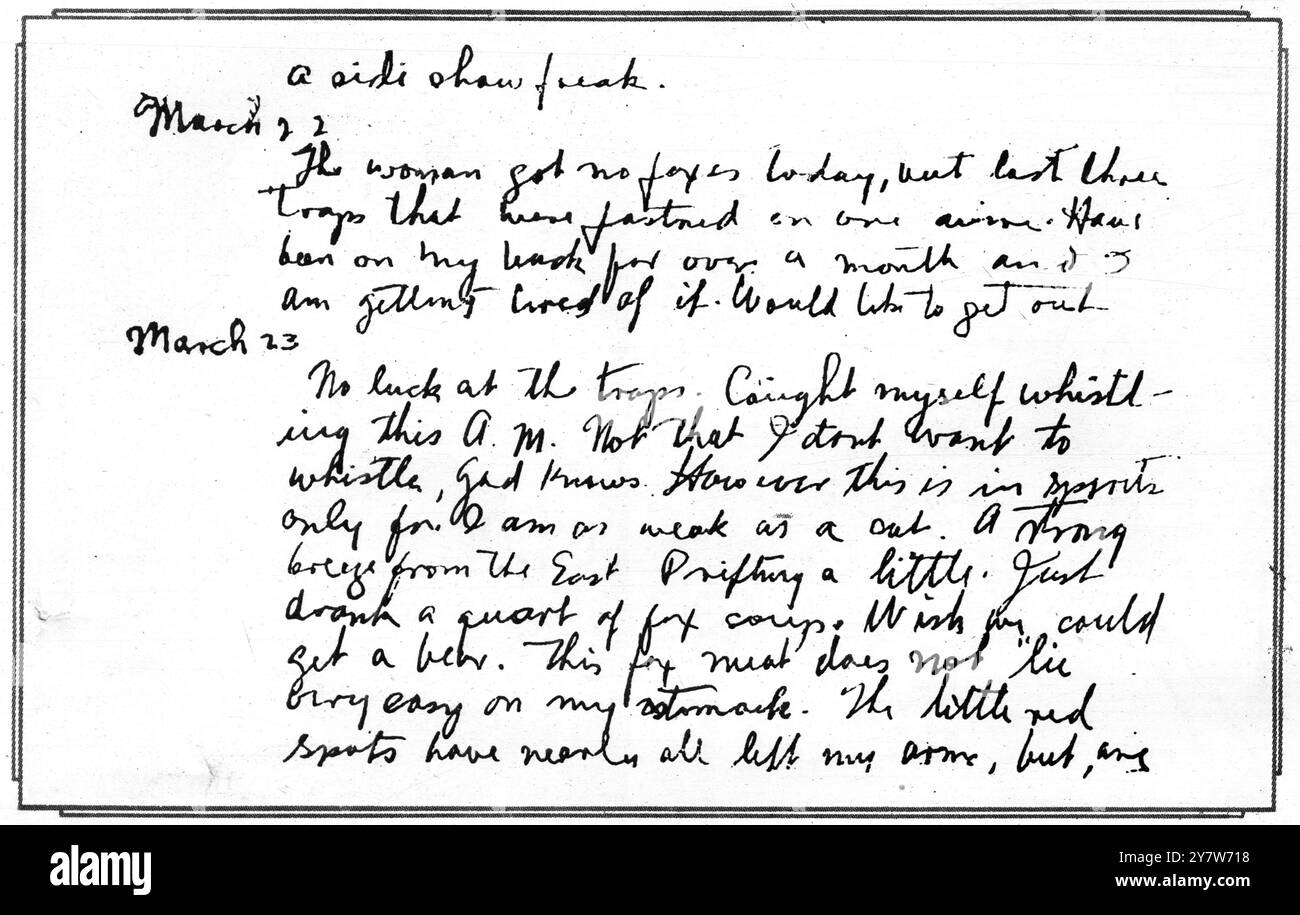 a side show freak.
March 22
The woman got no foxes today, but lost three
traps that were fastned on one wire. Have
been on my back for over a month and I
am getting tired of it. Would like to get out
March 23
No luck at the traps. Caught myself whistl-
ing this A.M. Not that I dont want to
whistle, God knows. However this is in spirits
only for I am as weak as a cat. A strong
breeze from the East Drifting a little. Just
drank a quart of fox soup. Wish we could
get a bear. This fox meat does not "lie
very easy on my stomack. The little red
spots have nearly all left my arms, but, are
alamy
Image ID: 2Y7W718
www.alamy.com